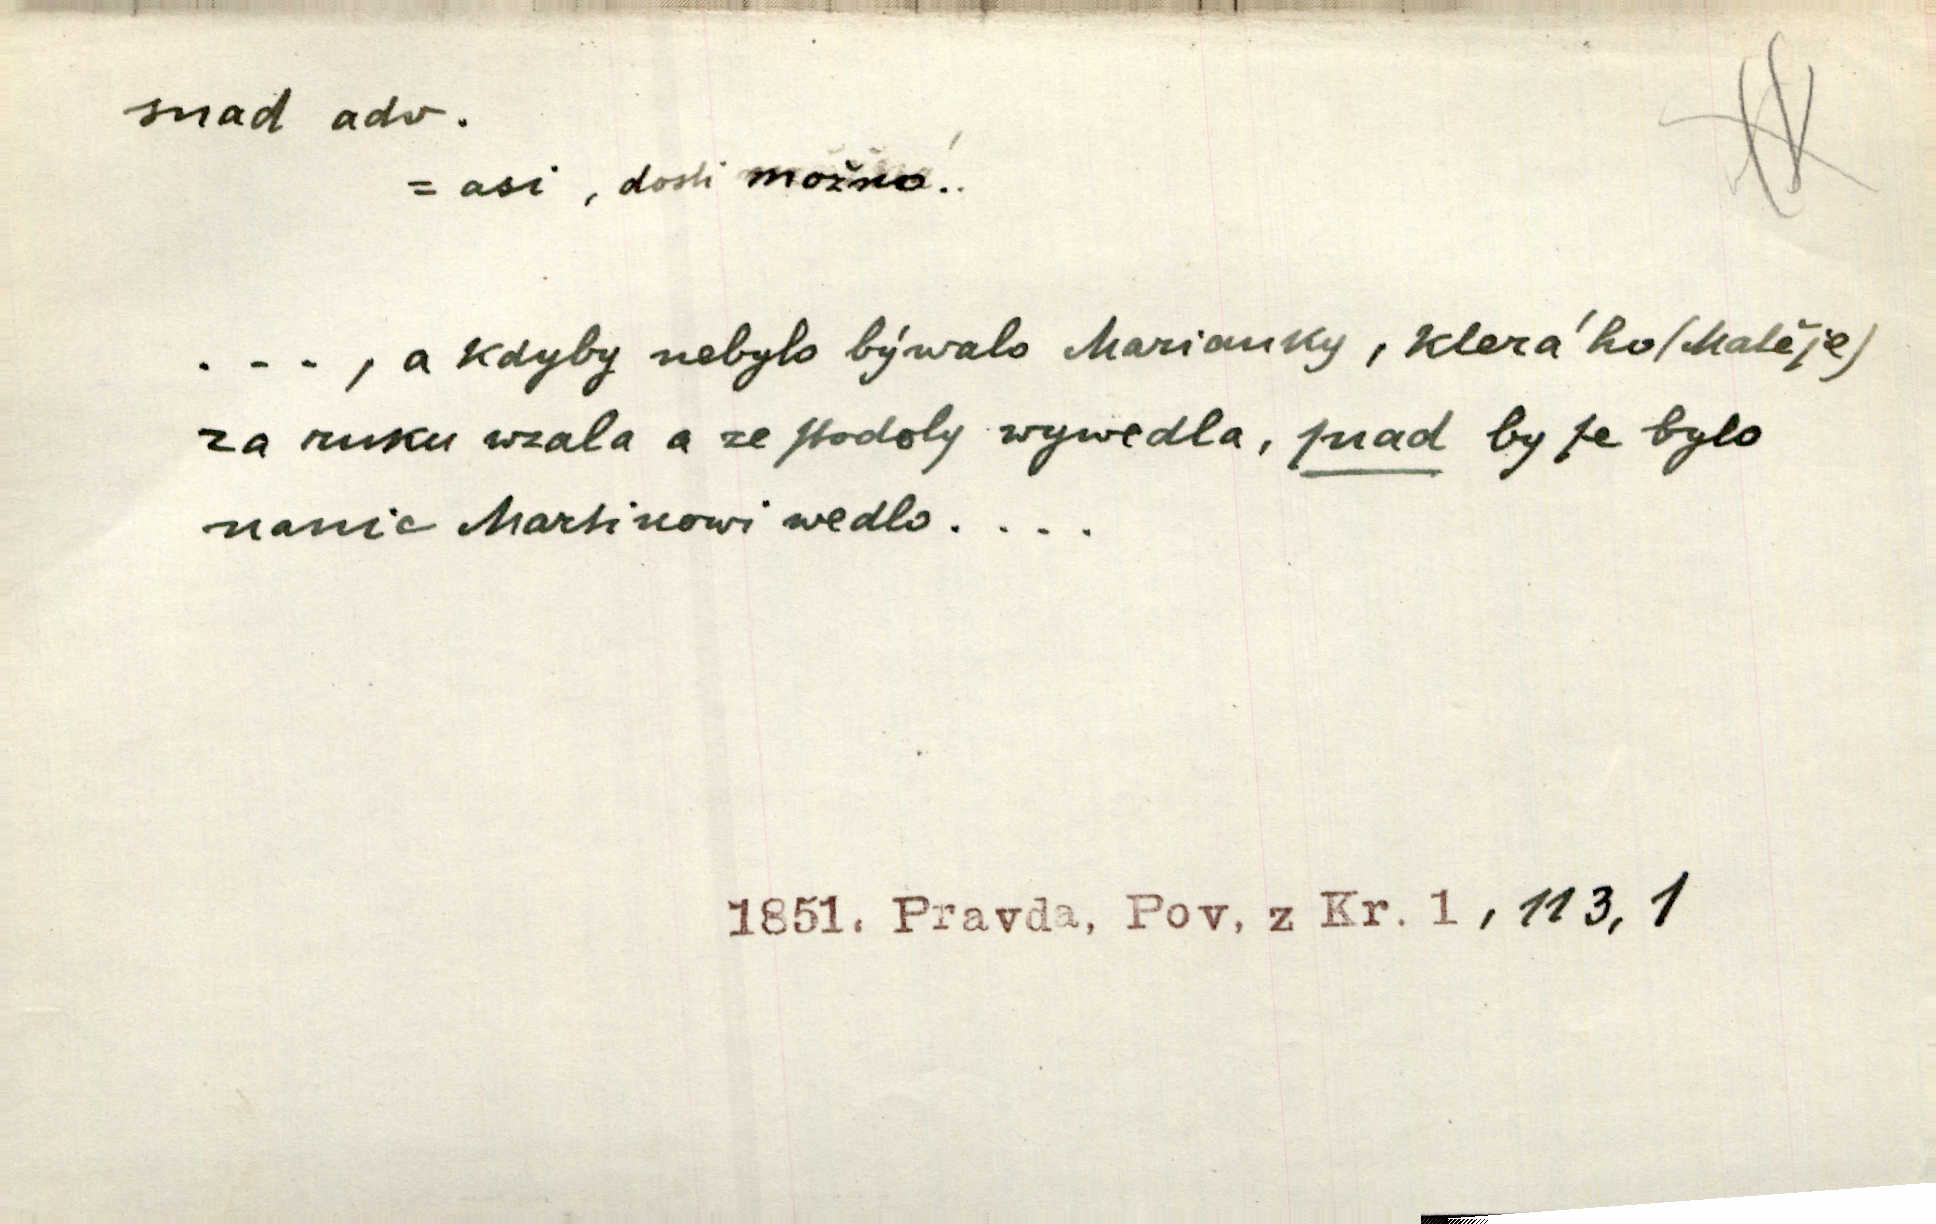 snad adv.
= asi, dosti možno..
. - - , a kdyby nebylo býwalo Marianky, která ho (Matěje)
za ruku wzala a ze stodoly wywedla, snad by se bylo
nanic Martinowi wedlo. . . .
1851. Pravda, Pov, z Kr. 1, 113, 1